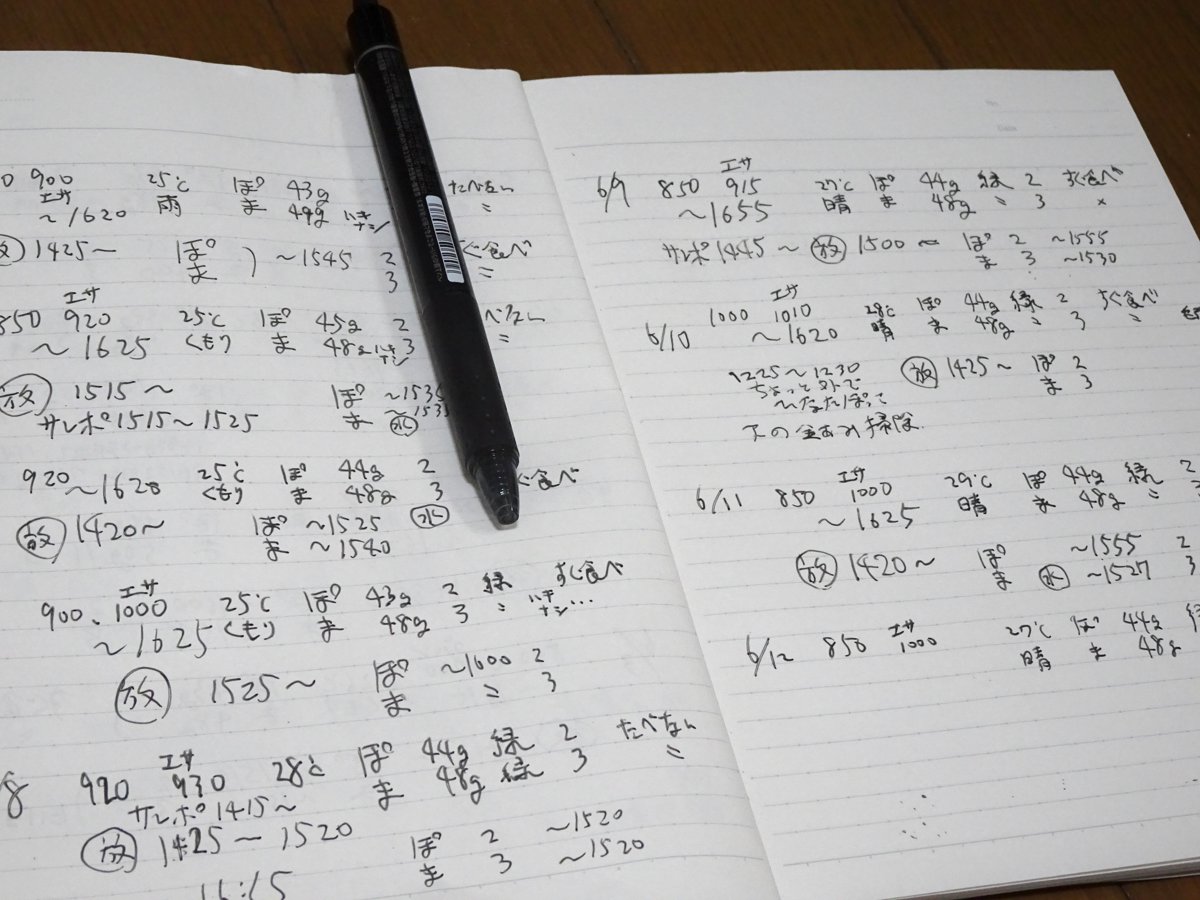 900 25℃ ぽ 43g たべない
エサ
~1620 雨 ま 49g 〃
放 1425~ ぽ ~1545 2 ぐ食べ
ま 3 〃
エサ
850 920 25℃ ぽ 45g 2 べない
~1625 くもり ま 48g 3 〃
放 1515~ ぽ ~1535
サンポ 1515~1525 ま 水
920 25℃ ぽ 44g 2 ぐ食べ
~1620 くもり ま 48g 3
放 1420~ ぽ ~1525 水
ま ~1540
エサ
900、1000 25℃ ぽ 43g 2 緑 すぐ食べ
~1625 くもり ま 48g 3 〃 ハキナシ...
放 1525~ ぽ ~1600 2
ま 〃 3
エサ
8 920 930 28℃ ぽ 44g 緑 2 たべない
サンポ 1415~ ま 48g 緑 3 〃
放 1425~1520 ぽ 2 ~1520
ま 3 ~1520
16:15
エサ
6/9 850 915 27℃ ぽ 44g 緑 2 すぐ食べ
~1655 晴 ま 48g 〃 3 〃
サンポ 1445~ 放 1500~ ぽ 2 ~1555
ま 3 ~1530
エサ
6/10 1000 1010 28℃ ぽ 44g 緑 2 すぐ食べ
~1620 晴 ま 48g 〃 3 〃
1225~1230 放 1425~ ぽ 2
ちょっと外で ま 3
ひなたぼっこ
下の金あみ掃除
エサ
6/11 850 1000 29℃ ぽ 44g 緑 2
~1625 晴 ま 48g 〃 3
放 1420~ ぽ ~1555 2
ま 水 ~1527 3
エサ
6/12 850 1000 27℃ ぽ 44g 緑
晴 ま 48g